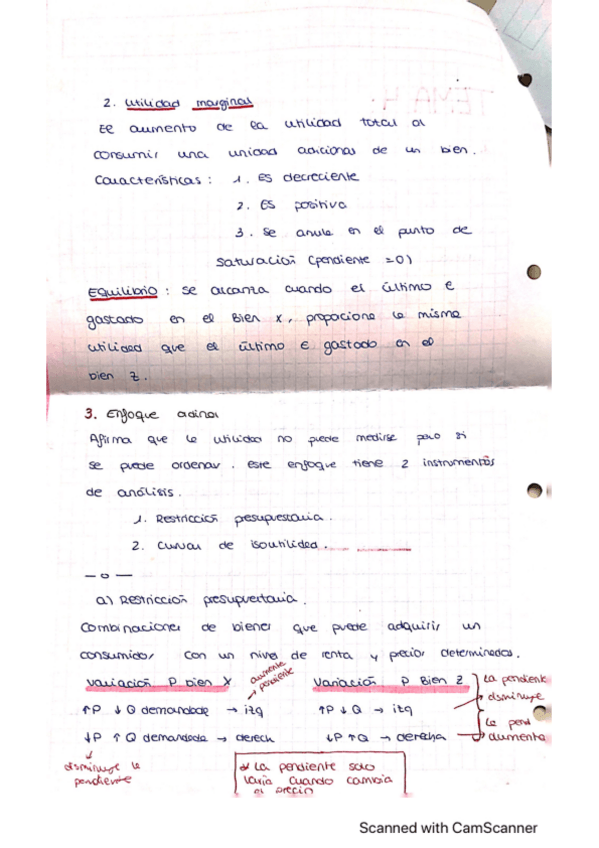 TEMA 4:
2. Utilidad marginal
El aumento de la utilidad total al
consumir una unidad adicional de un bien.
Características: 1. Es decreciente
2. Es positiva
3. Se anula en el punto de
saturación (pendiente = 0)
Equilibrio: Se alcanza cuando el último €
gastado en el Bien X, propocione la misma
utilidad que el último € gastado en el
bien Z.
3. Enfoque ordinal
Afirma que la utilidad no puede medirse pero si
se puede ordenar. este enfoque tiene 2 instrumentos
de análisis.
1. Restricción presupuestaria.
2. Curvas de isoutilidad.
—o—
a) Restricción presupuestaria.
Combinaciones de bienes que puede adquirir un
consumidor con un nivel de renta y precios determinados.
Variación P bien X → aumenta pendiente Variación P Bien Z
↑P ↓Q demandada → izq ↑P ↓Q → izq → La pendiente disminuye
↓P ↑Q demandada → derech ↓P ↑Q → derecha → La pend aumenta
↓ disminuye la pendiente
* La pendiente solo
varía cuando cambia
el precio
Scanned with CamScanner